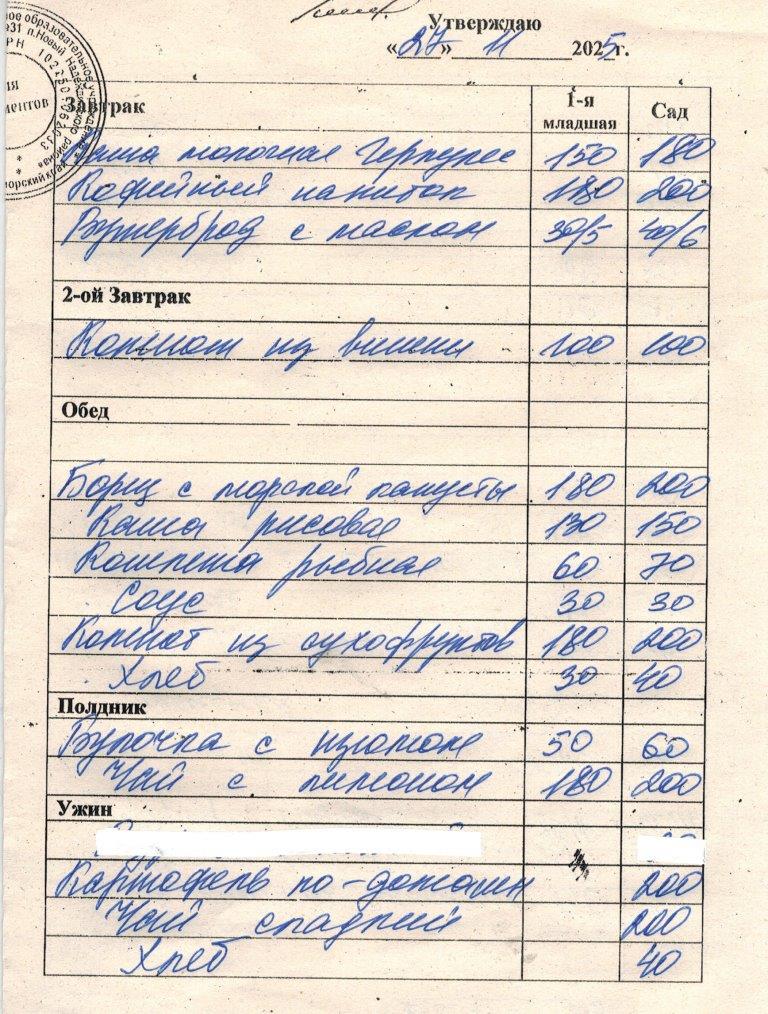 Утверждаю
«27» 11 2025г.
Завтрак 1-я младшая Сад
Каша молочная Геркулес 150 180
Кофейный напиток 180 200
Бутерброд с маслом 30/5 40/6
2-ой Завтрак
Компот из вишни 100 100
Обед
Борщ с морской капусты 180 200
Каша рисовая 130 150
Котлета рыбная 60 70
Соус 30 30
Компот из сухофруктов 180 200
Хлеб 30 40
Полдник
Булочка с изюмом 50 60
Чай с лимоном 180 200
Ужин
Картофель по-домашн 200
Чай сладкий 200
Хлеб 40